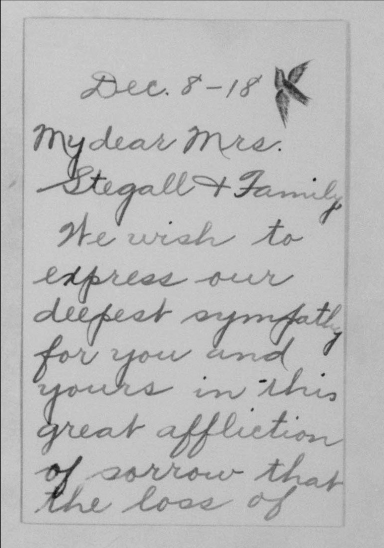 Dec. 8-18
My dear Mrs.
Stegall & Family
We wish to
express our
deepest sympathy
for you and
yours in this
great affliction
of sorrow that
the loss of